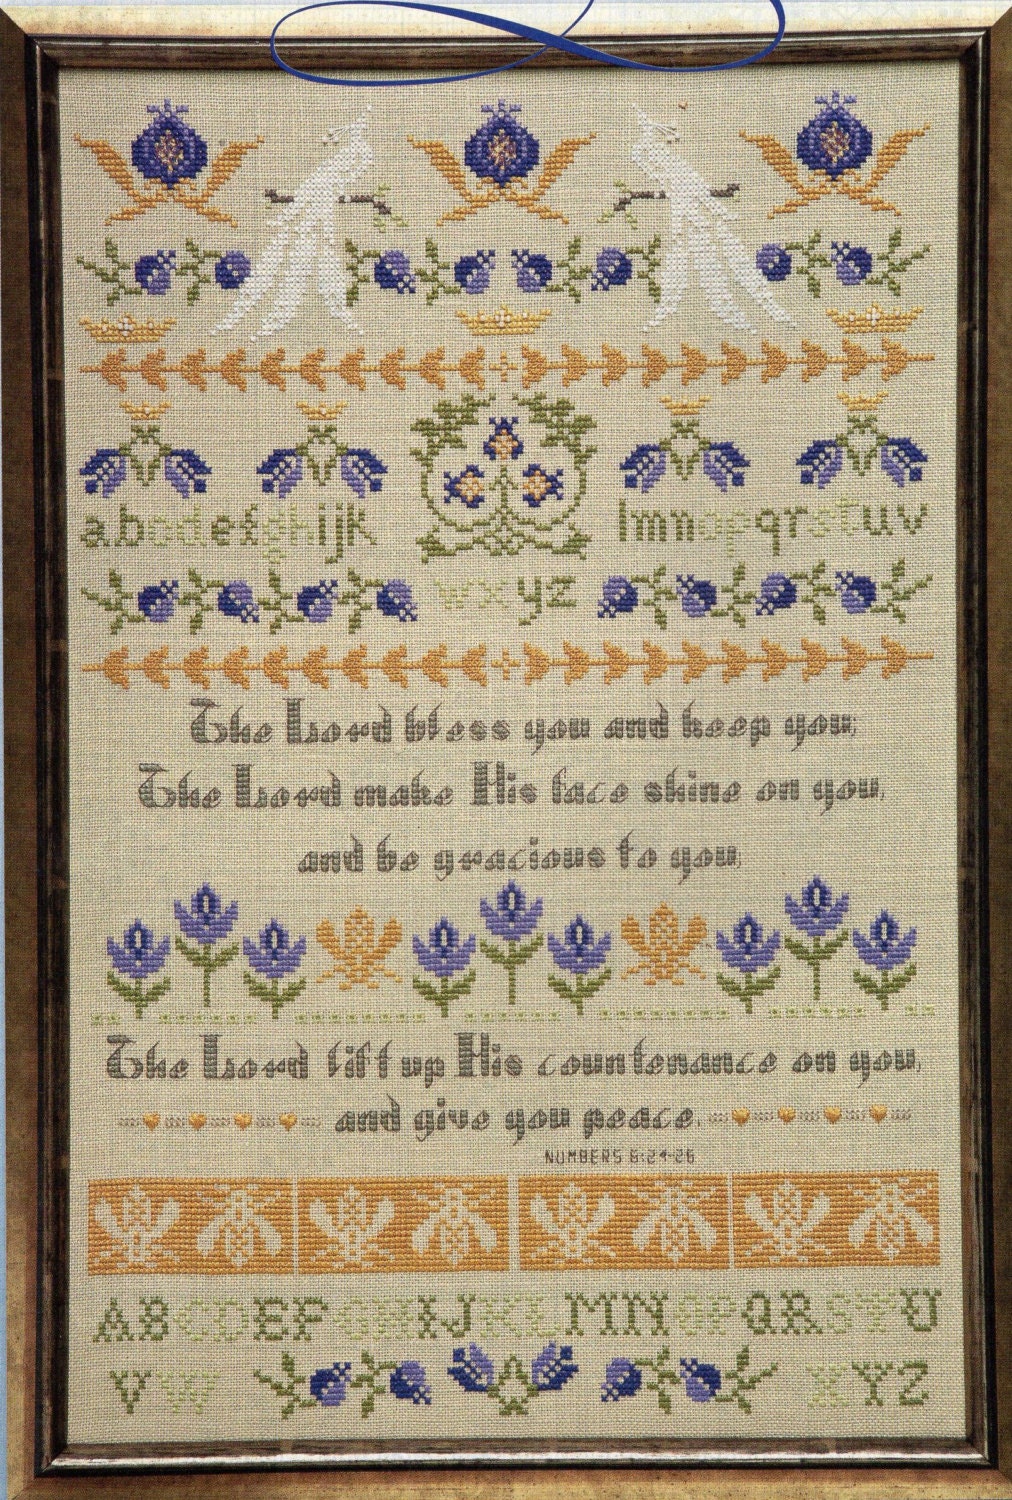 abcdefghijk lmnopqrstuv
wxyz
The Lord bless you and keep you;
The Lord make His face shine on you,
and be gracious to you;
The Lord lift up His countenance on you,
and give you peace.
NUMBERS 6:24-26
ABCDEFGHIJKLMNOPQRSTU
VW XYZ